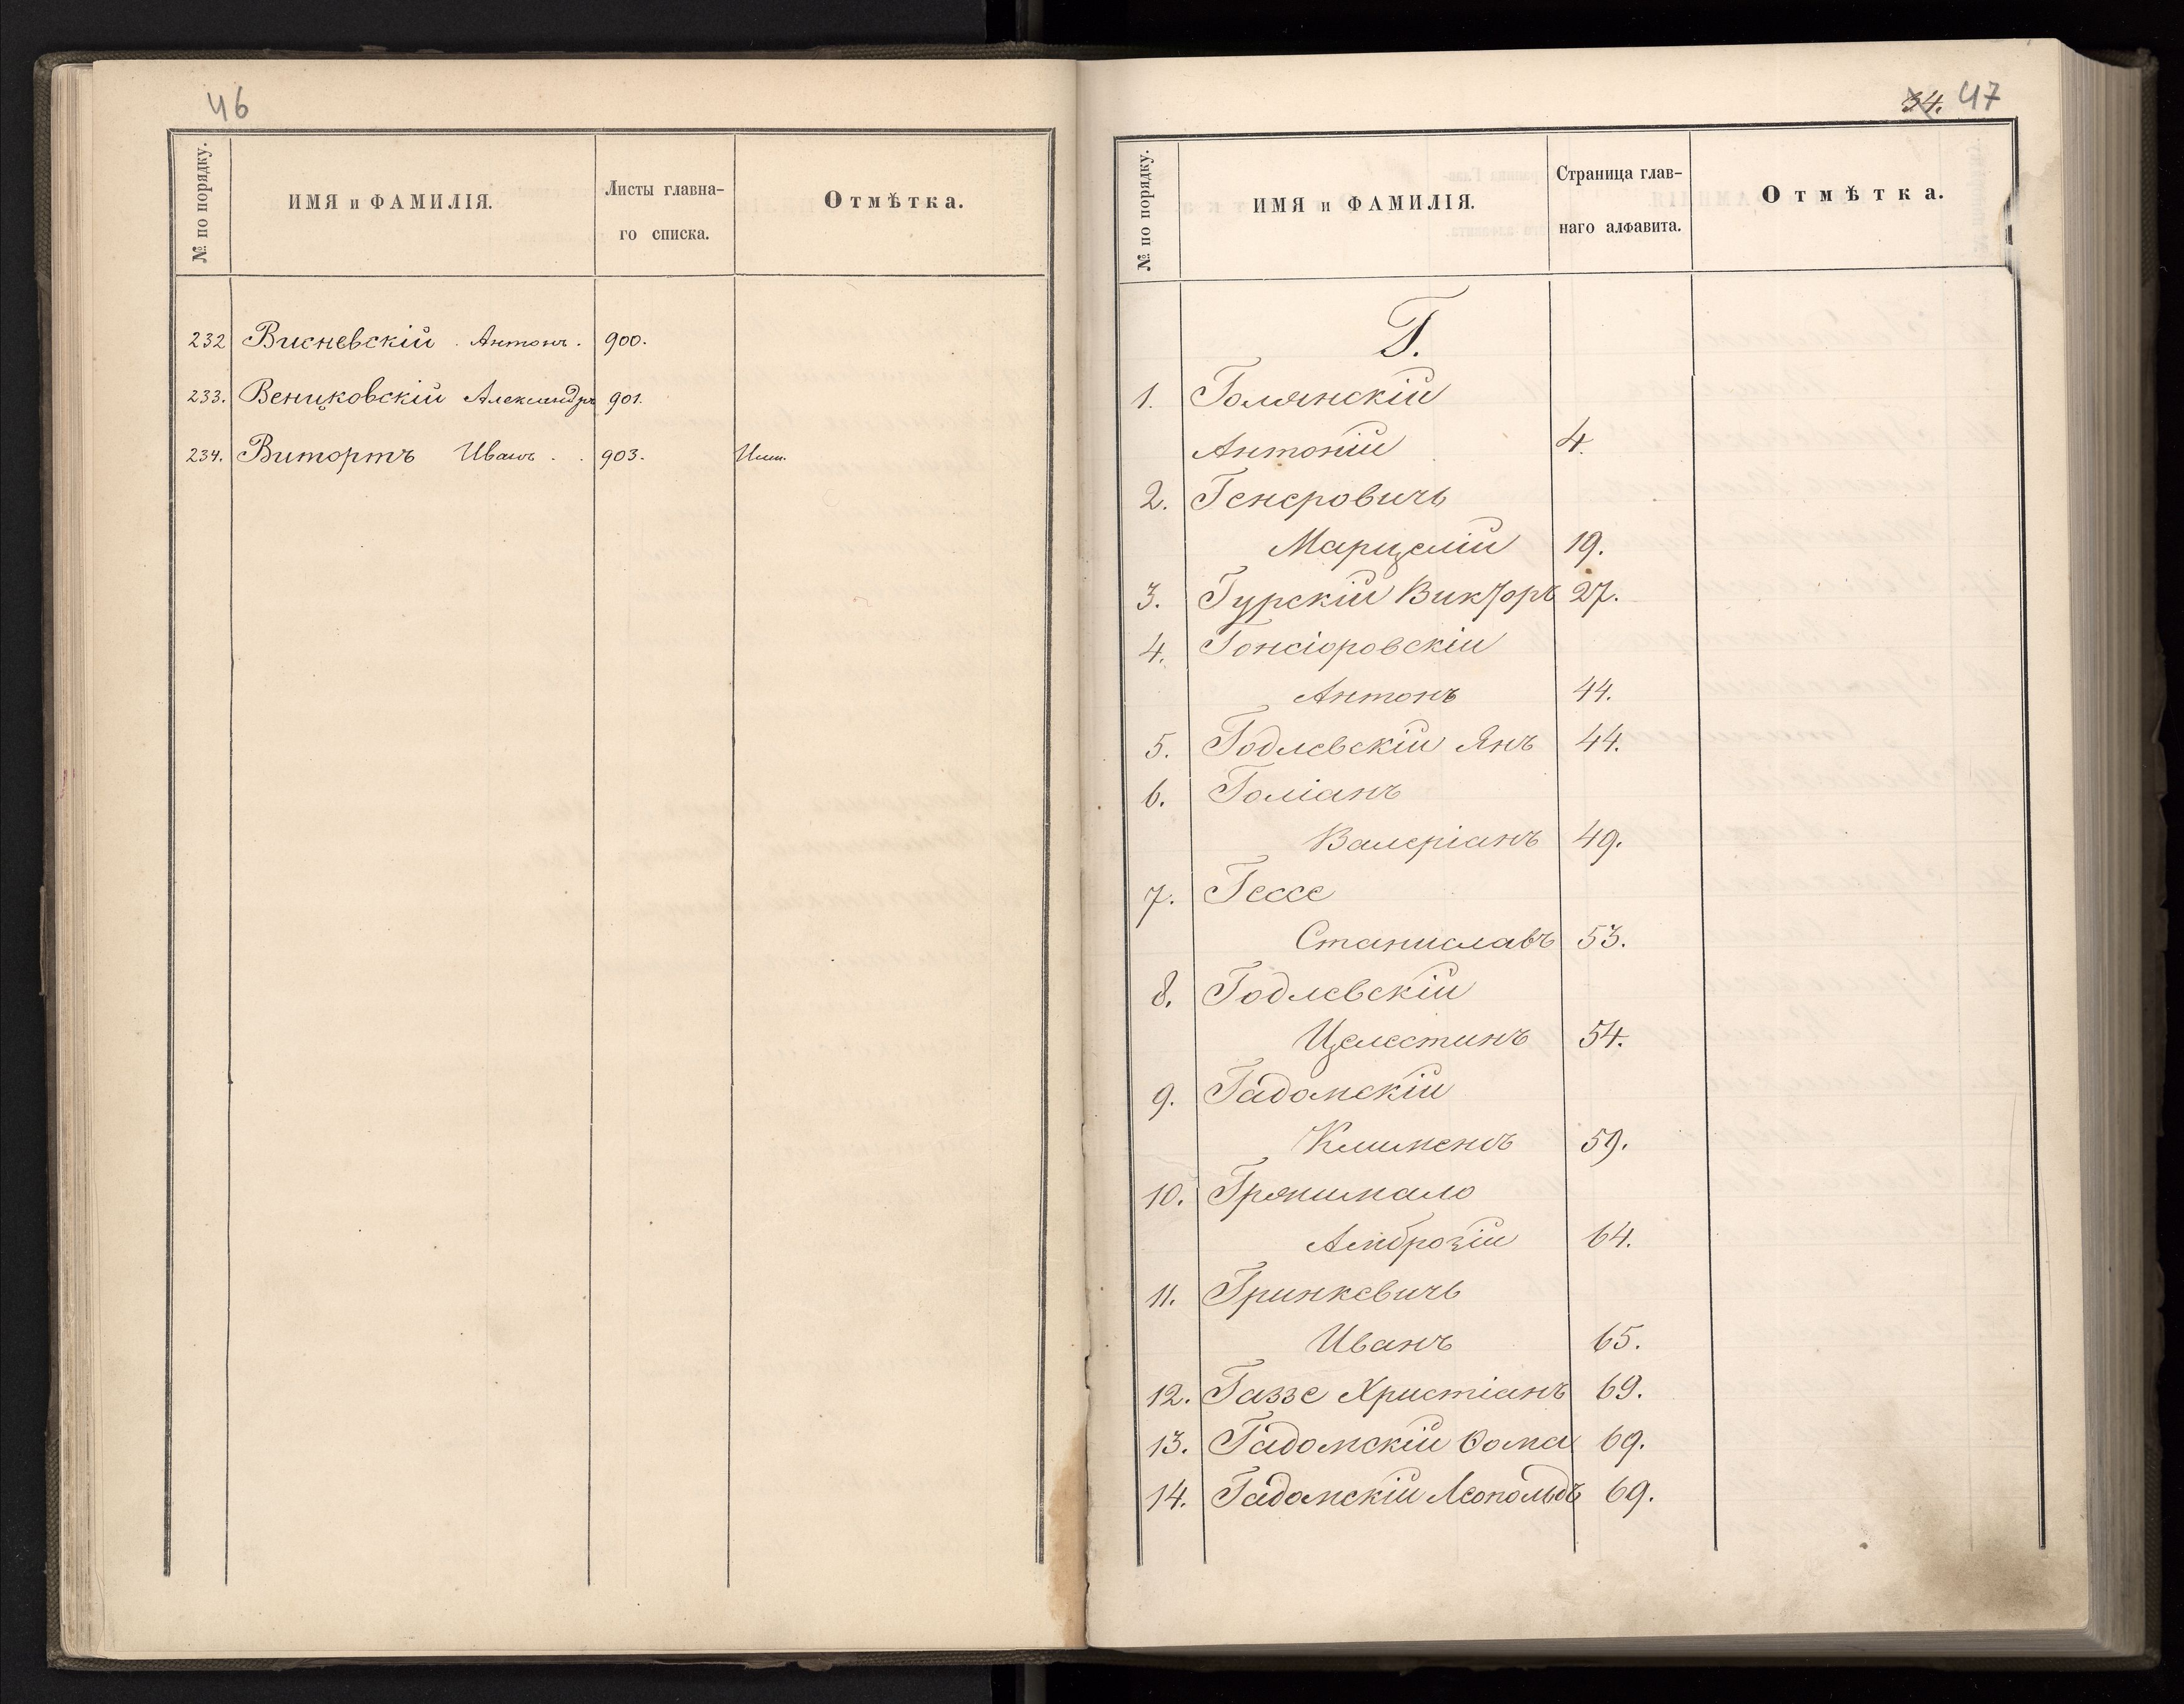 46
№ по порядку.
ИМЯ и ФАМИЛІЯ.
Листы главна-
го списка.
Отмѣтка.
232 Висневскій . Антонъ . 900.
233. Венцковскій Александръ 901.
234. Витортъ Иванъ . . 903.
34. 47
№ по порядку.
ИМЯ и ФАМИЛІЯ.
Страница глав-
наго алфавита.
Отмѣтка.
Г.
1. Голянскій
Антоній 4.
2. Генеровичъ
Марцелій 19.
3. Гурскій Викторъ 27.
4. Гонсіоровскій
Антонъ 44.
5. Годлевскій Янъ 44.
6. Голіанъ
Валеріанъ 49.
7. Гессе
Станиславъ 53.
8. Годлевскій
Целестинъ 54.
9. Гадомскій
Клименъ 59.
10. Грянимало
Амброзій 64.
11. Гринкевичъ
Иванъ 65.
12. Газзе Христіанъ 69.
13. Гадомскій Ѳома 69.
14. Гадомскій Леопольдъ 69.